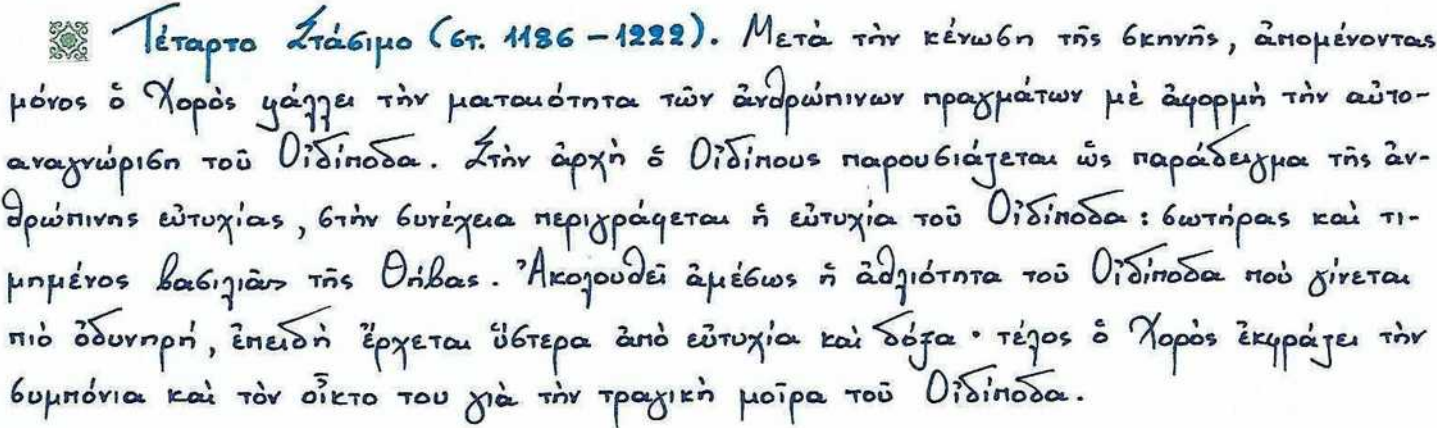 Τέταρτο Στάσιμο (στ. 1186 – 1222). Μετὰ τὴν κένωση τῆς σκηνῆς, ἀπομένοντας
μόνος ὁ Χορὸς ψάλλει τὴν ματαιότητα τῶν ἀνθρώπινων πραγμάτων μὲ ἀφορμὴ τὴν αὐτο-
αναγνώριση τοῦ Οἰδίποδα. Στὴν ἀρχὴ ὁ Οἰδίπους παρουσιάζεται ὡς παράδειγμα τῆς ἀν-
θρώπινης εὐτυχίας, στὴν συνέχεια περιγράφεται ἡ εὐτυχία τοῦ Οἰδίποδα : σωτήρας καὶ τι-
μημένος βασιλιᾶς τῆς Θήβας. Ἀκολουθεῖ ἀμέσως ἡ ἀθλιότητα τοῦ Οἰδίποδα ποὺ γίνεται
πιὸ ὀδυνηρή, ἐπειδὴ ἔρχεται ὕστερα ἀπὸ εὐτυχία καὶ δόξα · τέλος ὁ Χορὸς ἐκφράζει τὴν
συμπόνια καὶ τὸν οἶκτο του γιὰ τὴν τραγικὴ μοῖρα τοῦ Οἰδίποδα.